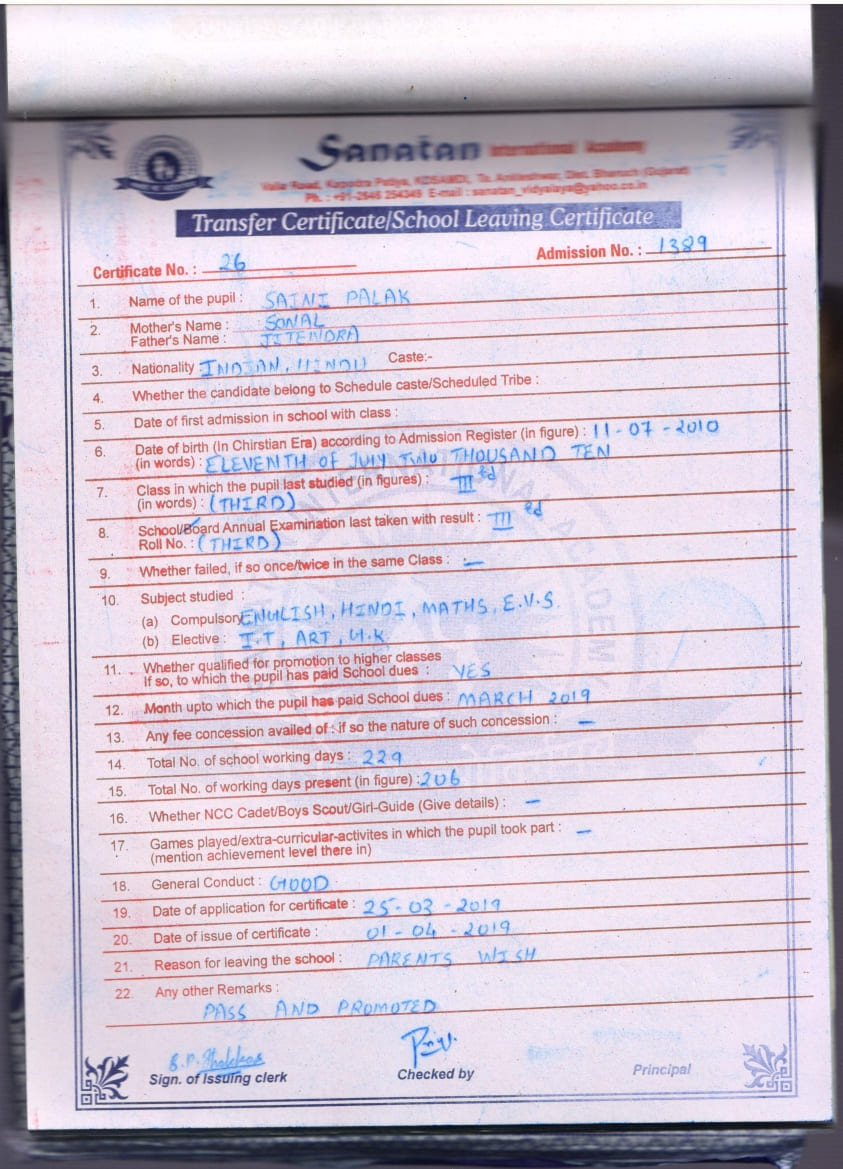 Sanatan International Academy
Valia Road, Kapodra Patiya, KOSAMDI, Ta. Ankleshwar, Dist. Bharuch (Gujarat)
Ph. : +91-2646 254349 E-mail : sanatan_vidyalaya@yahoo.co.in
Transfer Certificate/School Leaving Certificate
Certificate No. : 26
Admission No. : 1389
1. Name of the pupil : SAINI PALAK
2. Mother's Name : SONAL
Father's Name : JITENDRA
3. Nationality INDIAN, HINDU Caste:-
4. Whether the candidate belong to Schedule caste/Scheduled Tribe :
5. Date of first admission in school with class :
6. Date of birth (In Chirstian Era) according to Admission Register (in figure) : 11-07-2010
(in words) : ELEVENTH OF JULY TWO THOUSAND TEN
7. Class in which the pupil last studied (in figures) : III rd
(in words) : (THIRD)
8. School/Board Annual Examination last taken with result : III rd
Roll No. : (THIRD)
9. Whether failed, if so once/twice in the same Class : -
10. Subject studied :
(a) Compulsory ENGLISH, HINDI, MATHS, E.V.S.
(b) Elective : I.T, ART, G.K
11. Whether qualified for promotion to higher classes
If so, to which the pupil has paid School dues : YES
12. Month upto which the pupil has paid School dues : MARCH 2019
13. Any fee concession availed of : if so the nature of such concession : -
14. Total No. of school working days : 229
15. Total No. of working days present (in figure) : 206
16. Whether NCC Cadet/Boys Scout/Girl-Guide (Give details) : -
17. Games played/extra-curricular-activites in which the pupil took part : -
(mention achievement level there in)
18. General Conduct : GOOD
19. Date of application for certificate : 25-03-2019
20. Date of issue of certificate : 01-04-2019
21. Reason for leaving the school : PARENTS WISH
22. Any other Remarks :
PASS AND PROMOTED
Sign. of Issuing clerk
Checked by
Principal